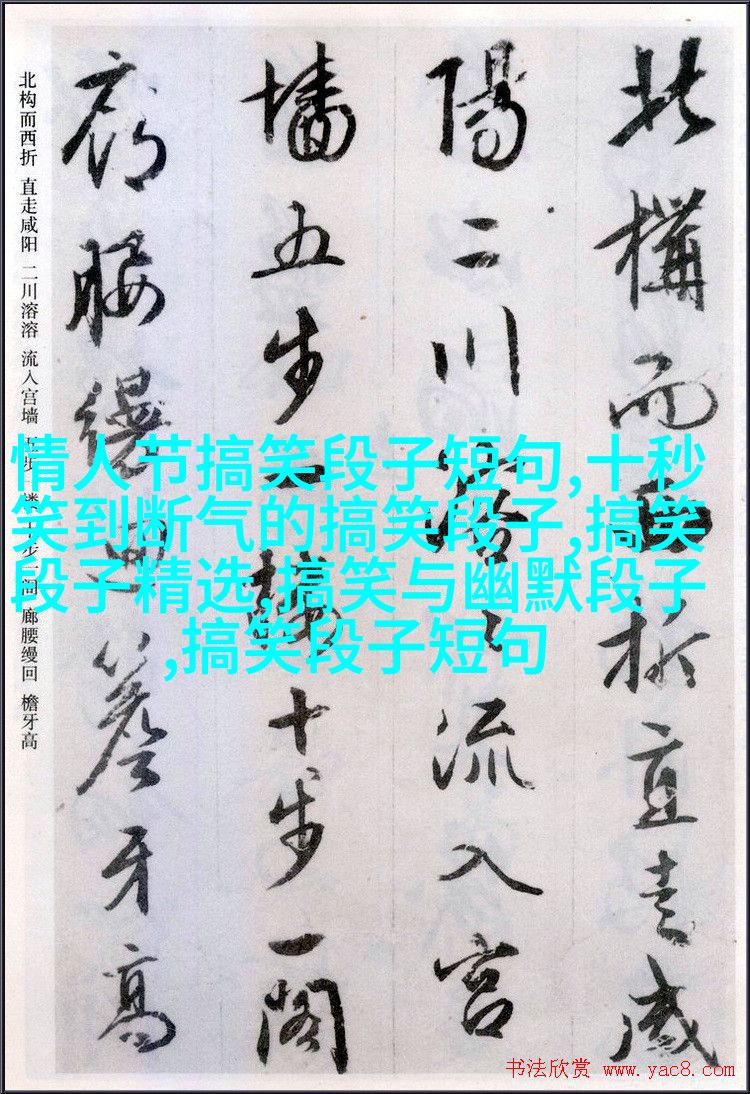 北構而西折直走咸
陽二川溶々流入宮
墻五步一樓十步一閣
廊腰縵迴簷牙高
北构而西折 直走咸阳 二川溶溶 流入宫墙 五步一楼 十步一阁 廊腰缦回 檐牙高
情人节搞笑段子短句,十秒
笑到断气的搞笑段子,搞笑
段子精选,搞笑与幽默段子
,搞笑段子短句
书法欣赏 www.yac8.com